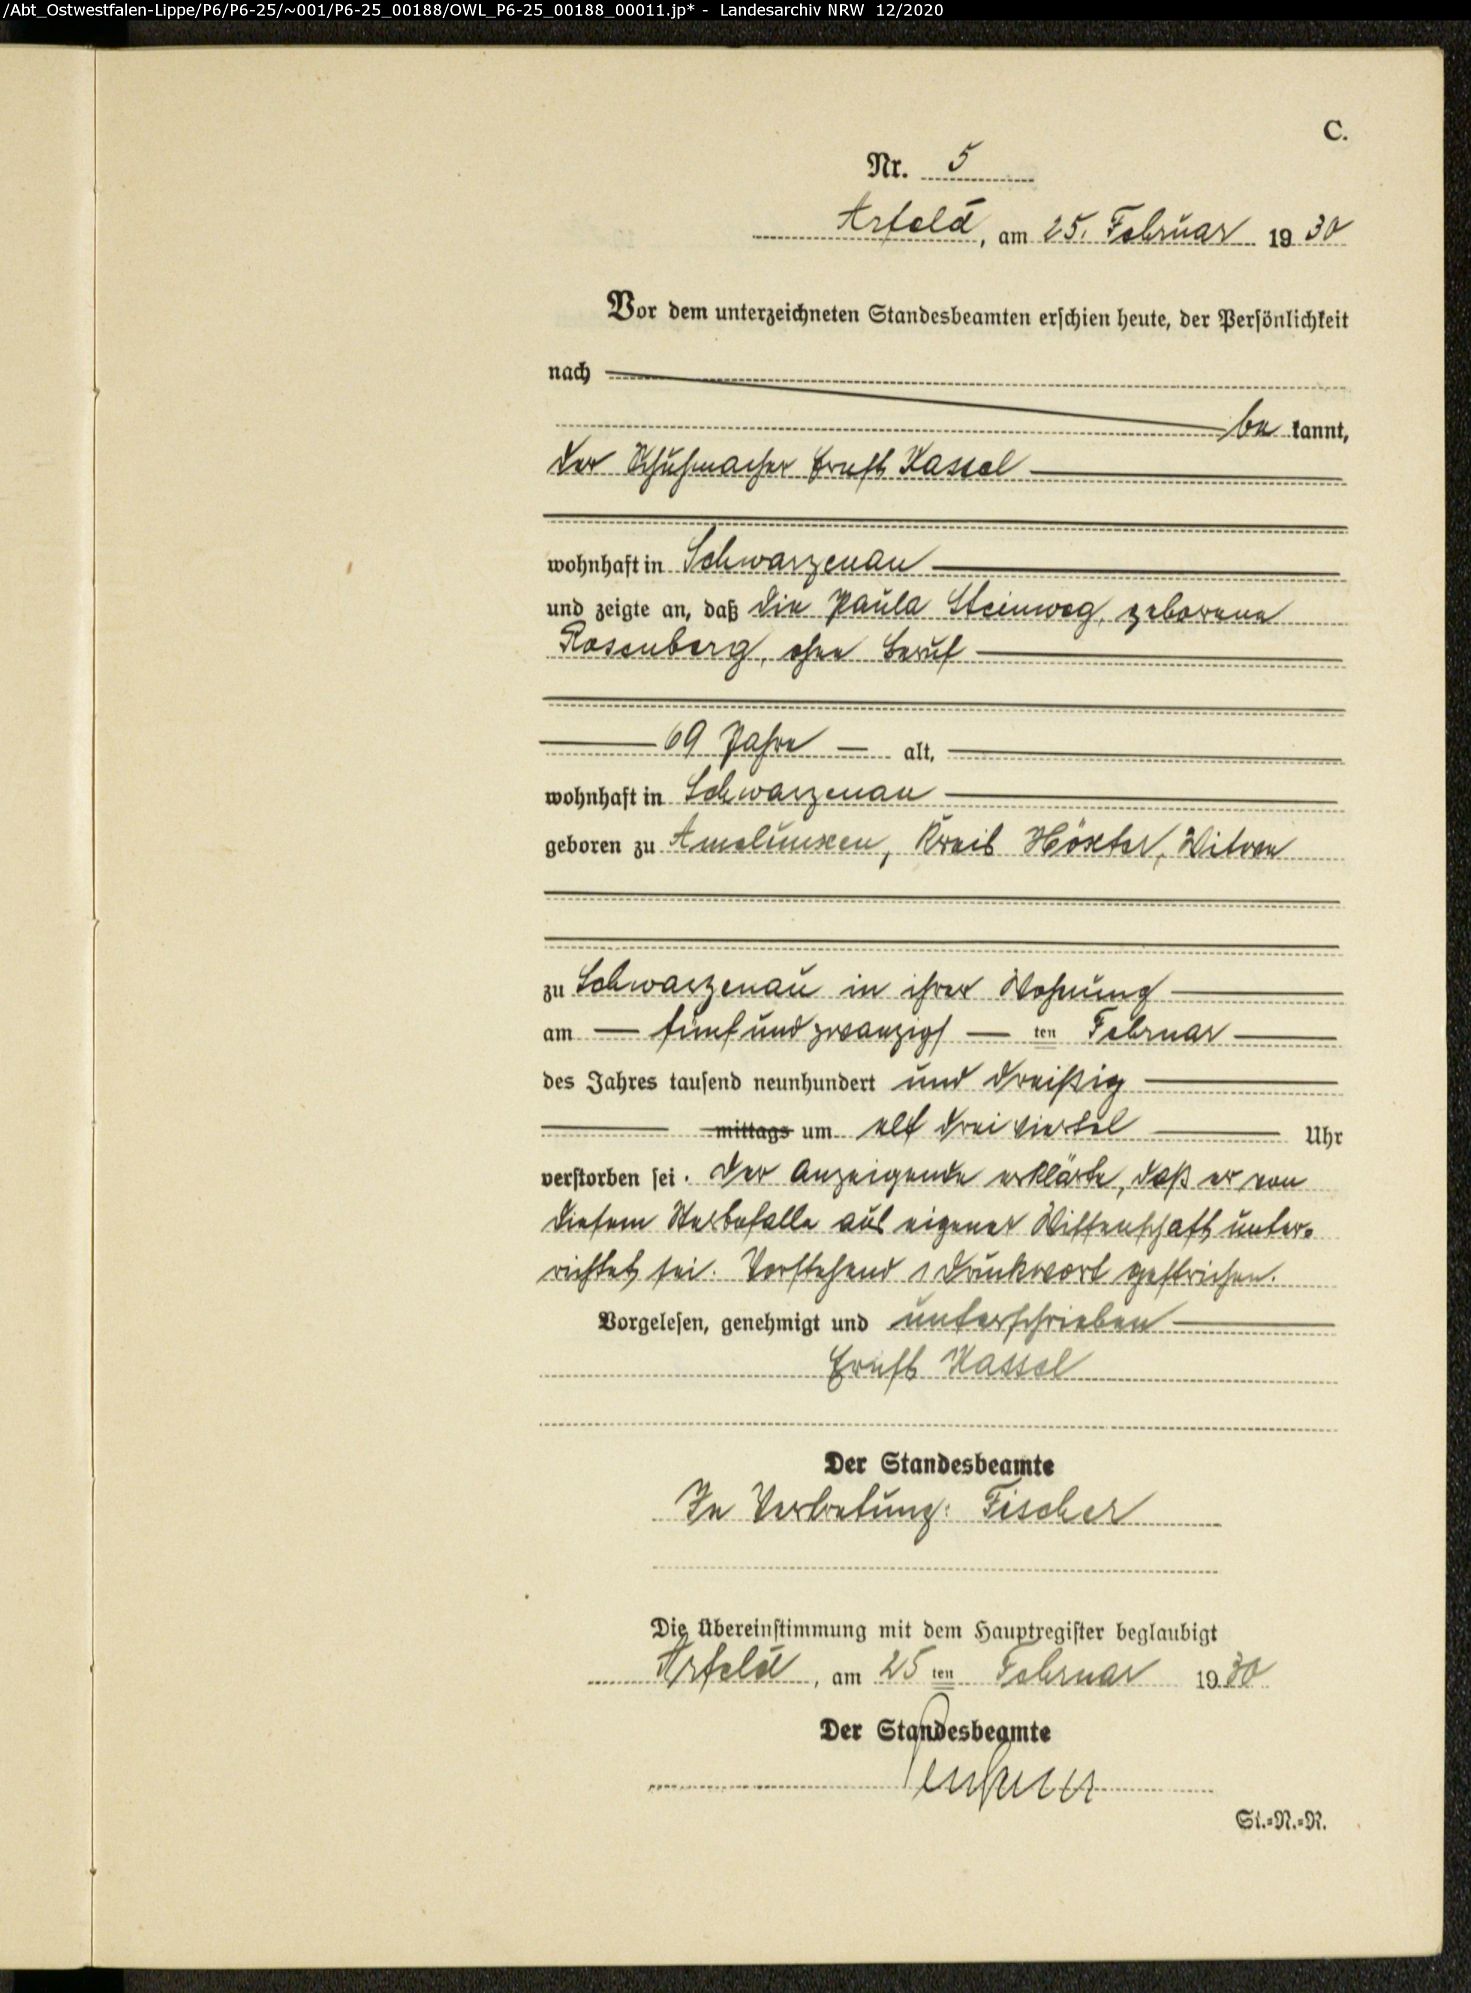 /Abt_Ostwestfalen-Lippe/P6/P6-25/~001/P6-25_00188/OWL_P6-25_00188_00011.jp* - Landesarchiv NRW 12/2020
C.
Nr. 5
Arfeld, am 25. Februar 1930
Vor dem unterzeichneten Standesbeamten erschien heute, der Persönlichkeit
nach
be kannt,
der Schuhmacher Ernst Kassel
wohnhaft in Schwarzenau
und zeigte an, daß die Paula Steinweg, geborene
Rosenberg, ohne Beruf
69 Jahre alt,
wohnhaft in Schwarzenau
geboren zu Amelunxen, Kreis Höxter, Witwe
zu Schwarzenau in ihrer Wohnung
am fünfundzwanzigsten Februar
des Jahres tausend neunhundert und dreißig
mittags um elf dreiviertel Uhr
verstorben sei. Der Anzeigende erklärte, daß er von
diesem Sterbefalle aus eigener Wissenschaft unter-
richtet sei. Vorstehend 1 Druckwort gestrichen.
Vorgelesen, genehmigt und unterschrieben
Ernst Kassel
Der Standesbeamte
In Vertretung: Fischer
Die Übereinstimmung mit dem Hauptregister beglaubigt
Arfeld, am 25ten Februar 1930
Der Standesbeamte
St.=N.=R.